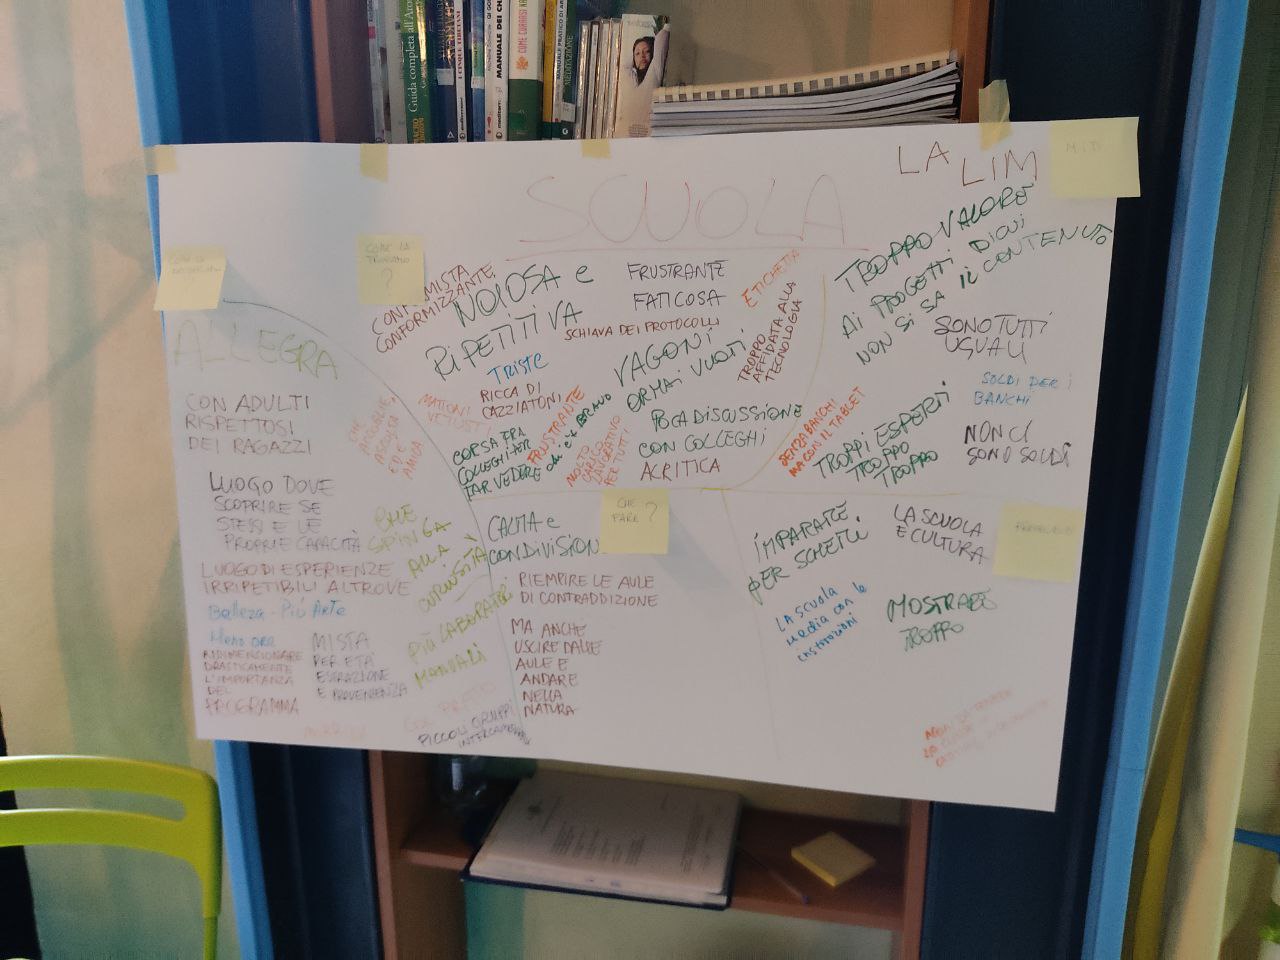 Guida completa all'
MANUALE DEI
COME CURARSI
MEDITAZIONE
SCUOLA
LA LIM
MITI
COME LA
?
?
ALLEGRA
CON ADULTI
RISPETTOSI
DEI RAGAZZI
LUOGO DOVE
SCOPRIRE SE
STESSI E LE
PROPRIE CAPACITÀ
LUOGO DI ESPERIENZE
IRRIPETIBILI ALTROVE
Bellezza - Più Arte
Meno ore
RIDIMENSIONARE
DRASTICAMENTE
L'IMPORTANZA
DEL
PROGRAMMA
MISTA
PER ETÀ
ESTRAZIONE
E PROVENIENZA
CHE
ACCOGLIE,
ASCOLTA
SIA
AMICA
CHE
SPINGA
ALLA
CURIOSITÀ
PIÙ LABORATORI
MANUALI
PICCOLI GRUPPI
CONFORMISTA
CONFORMIZZANTE
NOIOSA e
RIPETITIVA
FRUSTRANTE
FATICOSA
SCHIAVA DEI PROTOCOLLI
ETICHETTA
TROPPO
AFFIDATA ALLA
TECNOLOGIA
TRISTE
RICCA DI
CAZZIATONI
MATTONI
VETUSTI
VAGONI
ORMAI VUOTI
CORSA FRA
COLLEGHI PER
FAR VEDERE chi è + BRAVO
FRUSTRANTE
MOLTO
CARICO
LAVORATIVO
PER TUTTI
POCA DISCUSSIONE
CON COLLEGHI
ACRITICA
TROPPO VALORE
AI PROGETTI DI CUI
NON SI SA IL CONTENUTO
SONO TUTTI
UGUALI
SOLDI PER i
BANCHI
SENZA BANCHI
MA CON IL TABLET
TROPPI ESPERTI
TROPPO
TROPPO
NON CI
SONO SOLDI
CHE
FARE ?
CALMA e
CONDIVISION
RIEMPIRE LE AULE
DI CONTRADDIZIONE
MA ANCHE
USCIRE DALLE
AULE E
ANDARE
NELLA
NATURA
IMPARARE
PER SCHEMI
LA SCUOLA
È CULTURA
LA SCUOLA
Media con le
MOSTRARE
TROPPO